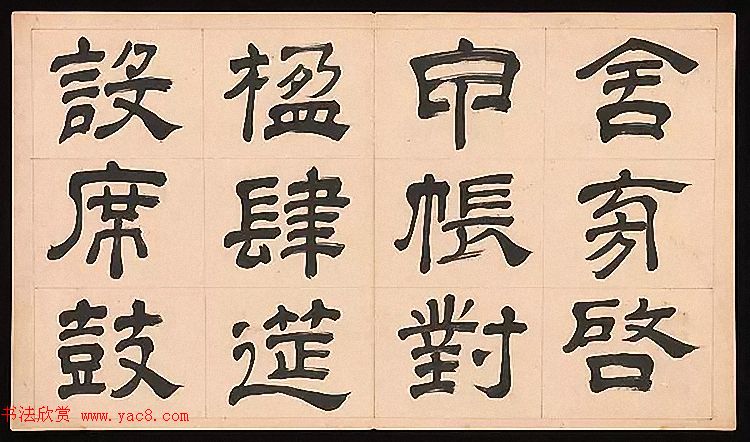 舍旁啓
甲帳對
楹肆筵
設席鼓
书法欣赏 www.yac8.com